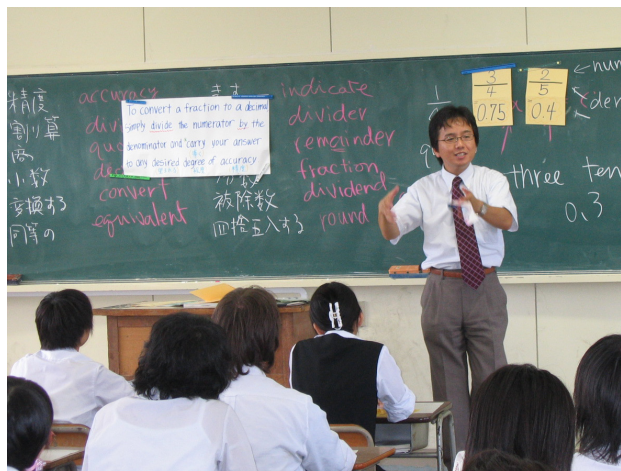 精度
割り算
商
小数
変換する
同等の
accuracy
convert
equivalent
To convert a fraction to a decimal
simply divide the numerator by the
denominator and carry your answer
to any desired degree of accuracy
被除数
四捨五入する
indicate
divider
remainder
fraction
dividend
round
3
4
0.75
2
5
0.4
three ten
0.3